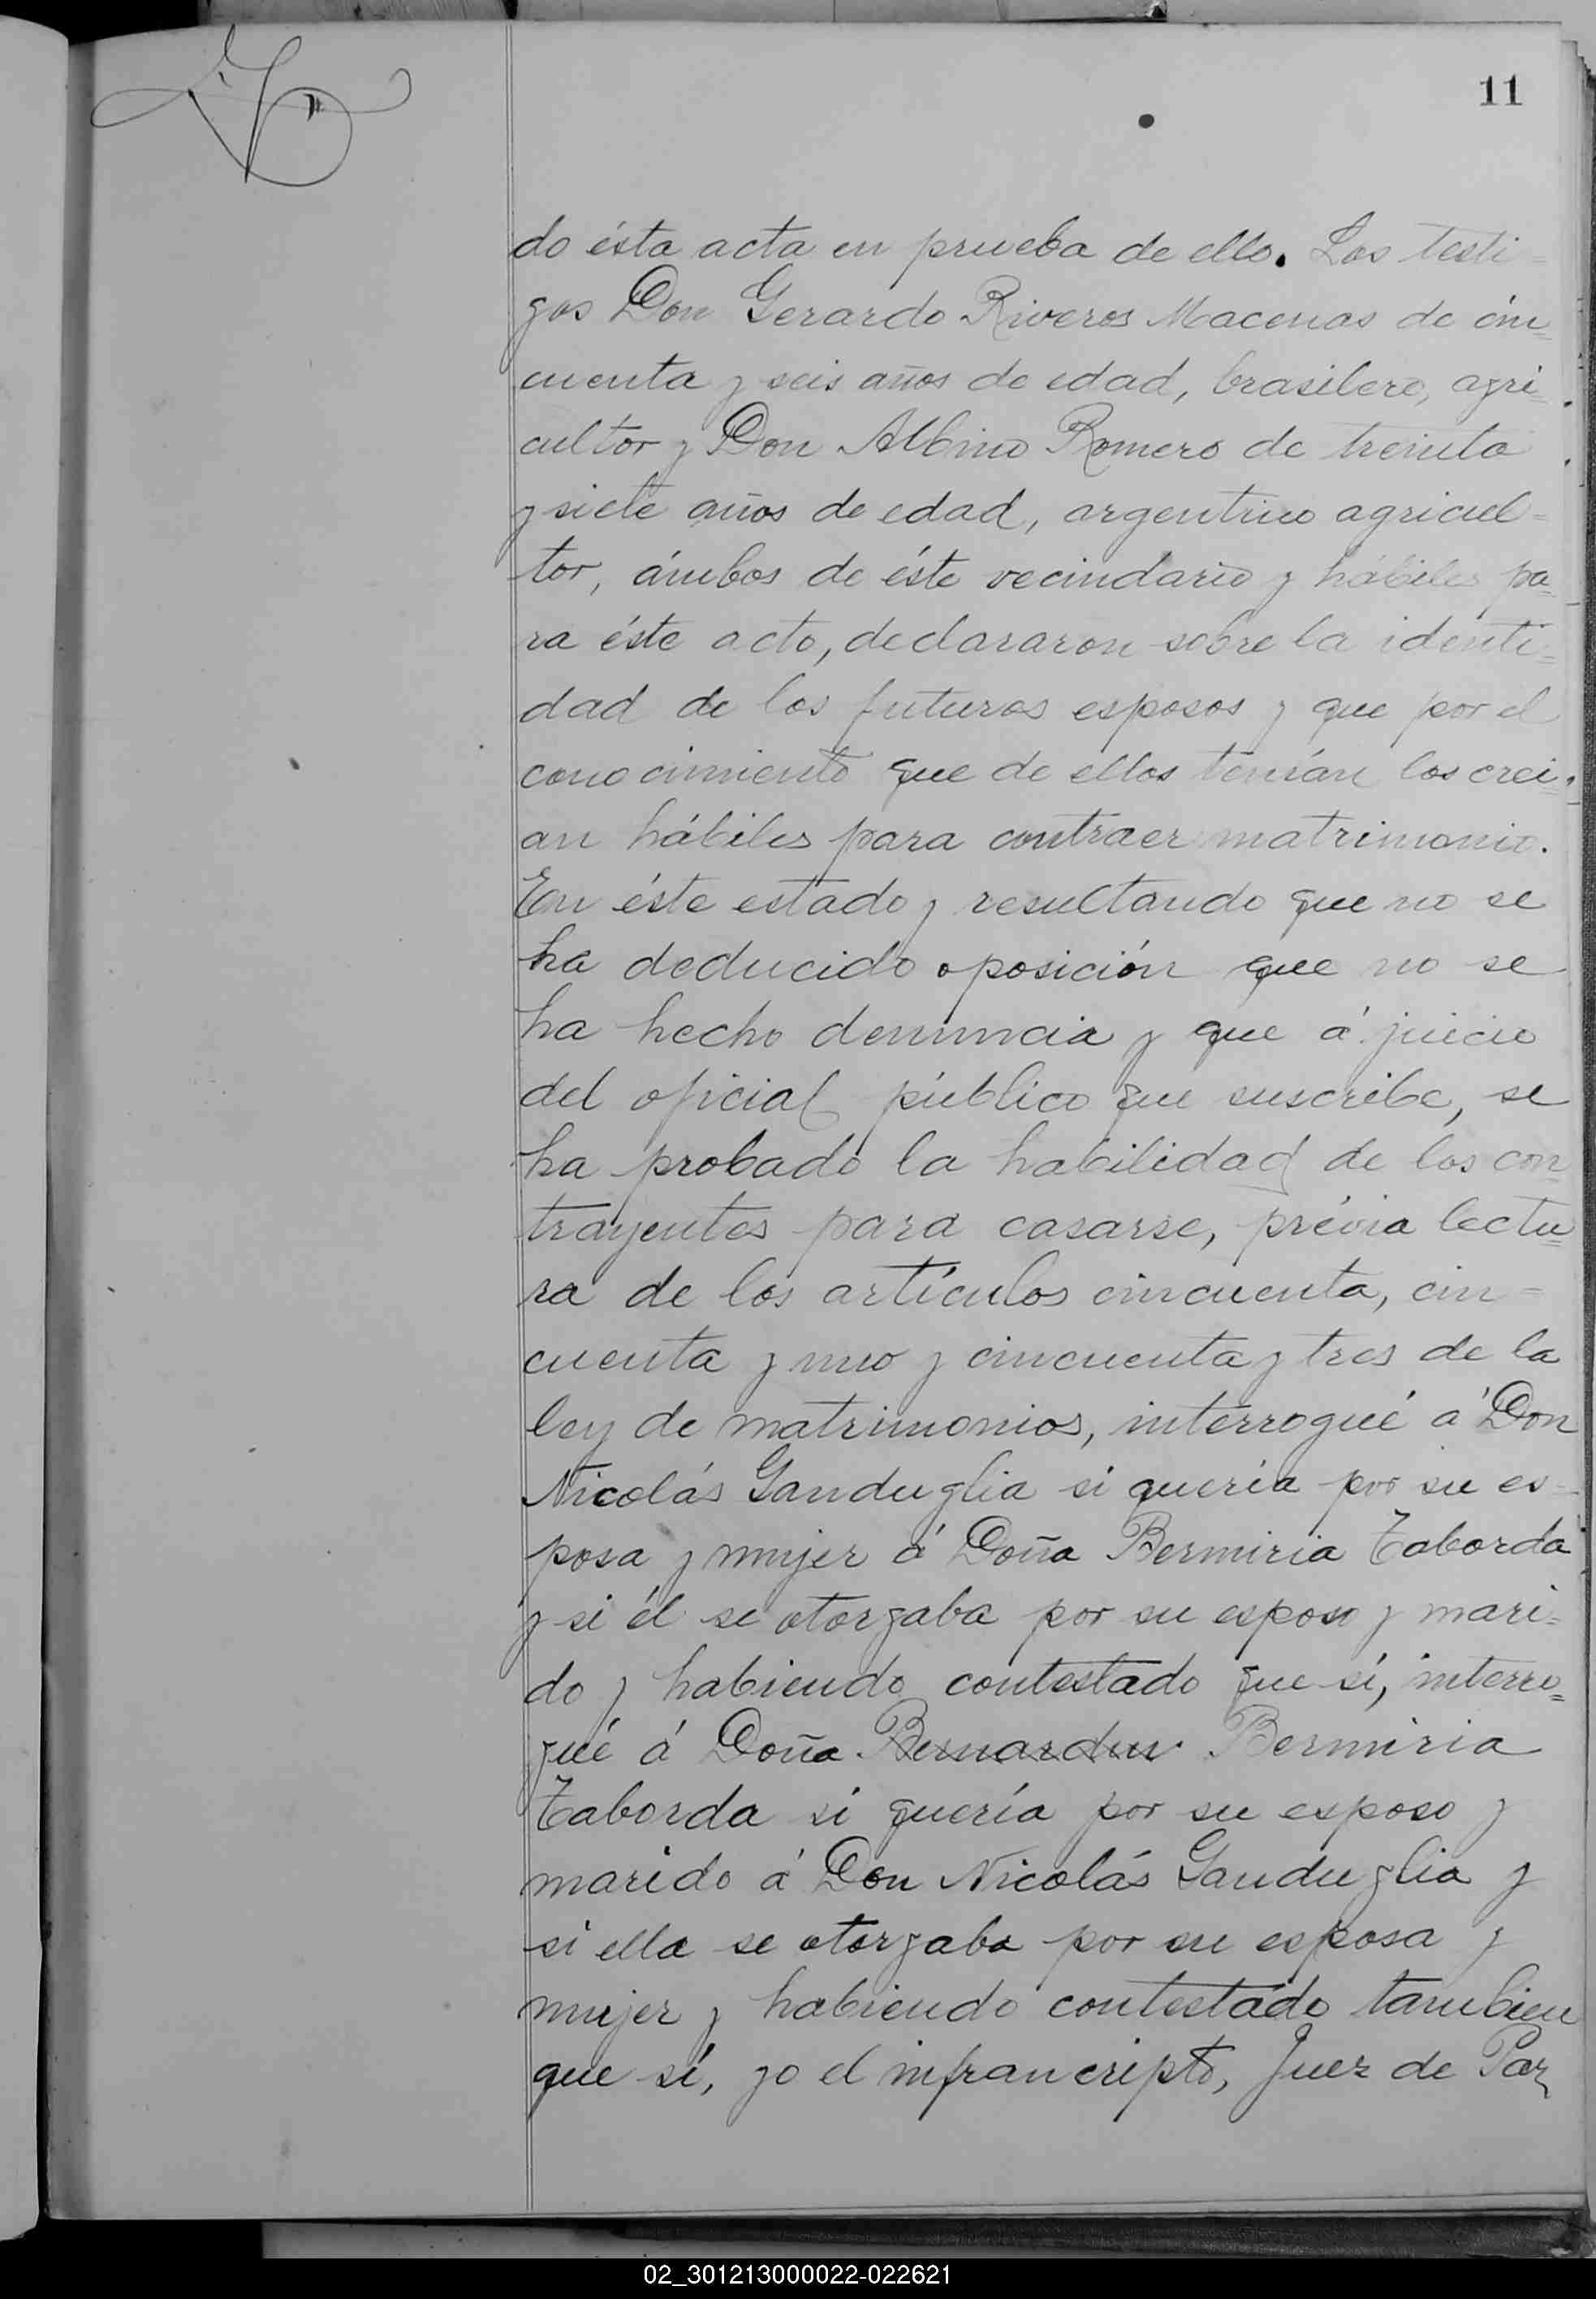 11
do ésta acta en prueba de ello. Los testi=
gos Don Gerardo Riveros Macenas de cin=
cuenta y seis años de edad, brasilero, agri=
cultor y Don Albino Romero de treinta
y siete años de edad, argentino agricul=
tor, ámbos de éste vecindario y hábiles pa=
ra éste acto, declararon sobre la identi=
dad de los futuros esposos y que por el
conocimiento que de ellos tenían los crei=
an hábiles para contraer matrimonio.
En éste estado y resultando que no se
ha deducido oposición que no se
ha hecho denuncia y que á juicio
del oficial público que suscribe, se
ha probado la habilidad de los con=
trayentes para casarse, prévia lectu=
ra de los artículos cincuenta, cin=
cuenta y uno y cincuenta y tres de la
ley de matrimonios, interrogué á Don
Nicolás Ganduglia si quería por su es=
posa y mujer á Doña Bermiria Taborda
y si él se otorgaba por su esposo y mari=
do y habiendo contestado que sí, interro=
gué á Doña Bernardin Bermiria
Taborda si quería por su esposo y
marido á Don Nicolás Ganduglia y
si ella se otorgaba por su esposa y
mujer y habiendo contestado tambien
que sí, yo el infrancripto, Juez de Paz
02_301213000022-022621